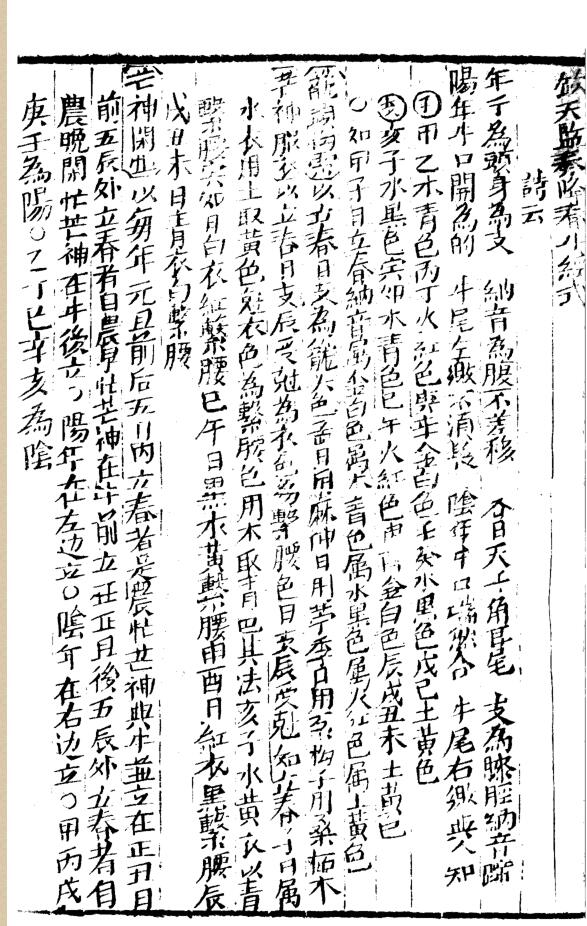 欽天監奏准春牛經式
詩云
年干為頭身為支 納音為腹不差移 春日天干角耳尾 支為膝脛納音蹄
陽年牛口開為的 牛尾左繳不消疑 陰年牛口端然合 牛尾右繳與人知
干甲乙木青色丙丁火紅色庚辛金白色壬癸水黑色戊己土黃色
支亥子水黑色寅卯木青色巳午火紅色申酉金白色辰戌丑未土黃色
〇如甲子日立春納音屬金白色屬木青色屬水黑色屬火紅色屬土黃色
籠頭拘繩以立春日支為籠頭色孟日用麻仲日用苧季日用絲拘子用桑柘木
芒神服衣以立春日支辰受剋為衣色為繫腰色日支辰受剋如立春子日屬
水衣用土取黃色剋衣色為繫腰色用木取青色其法亥子水黃衣以青
繫腰寅卯日白衣紅繫腰巳午日黑衣黃繫腰申酉日紅衣黑繫腰辰
戌丑未日青衣白繫腰
芒神閑忙以每年元旦前后五日內立春者是農忙芒神與牛並立在正旦日
前五辰外立春者自農早忙芒神在牛前立在正旦後五辰外立春者自
農晚閑忙芒神在牛後立〇陽年在左边立〇陰年在右边立〇甲丙戊
庚壬為陽〇乙丁己辛亥為陰